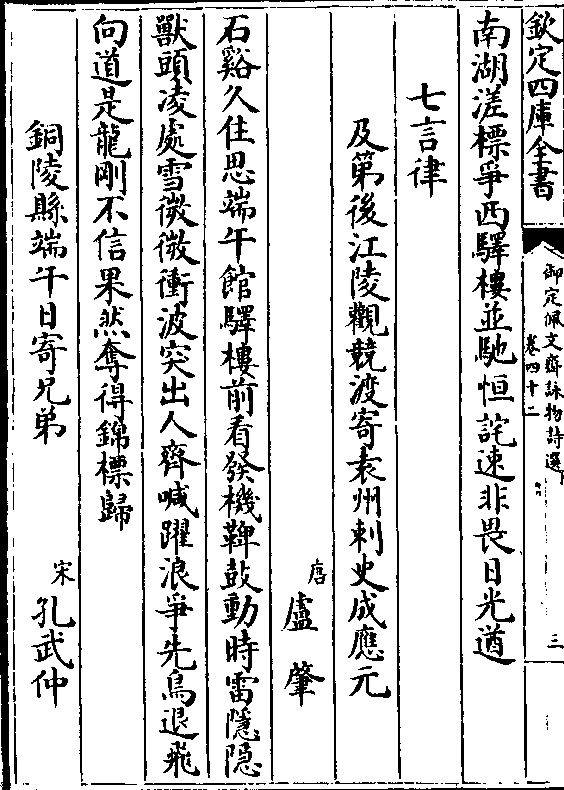 欽定四庫全書
御定佩文齋詠物詩選
卷四十二
三
南湖溠標爭西驛樓並馳恒詫速非畏日光遒
七言律
及第後江陵觀競渡寄袁州刺史成應元
唐 盧肇
石谿久住思端午館驛樓前看發機鞞鼓動時雷隱隱
獸頭凌處雪微微衝波突出人齊喊躍浪爭先鳥退飛
向道是龍剛不信果然奪得錦標歸
銅陵縣端午日寄兄弟
宋 孔武仲